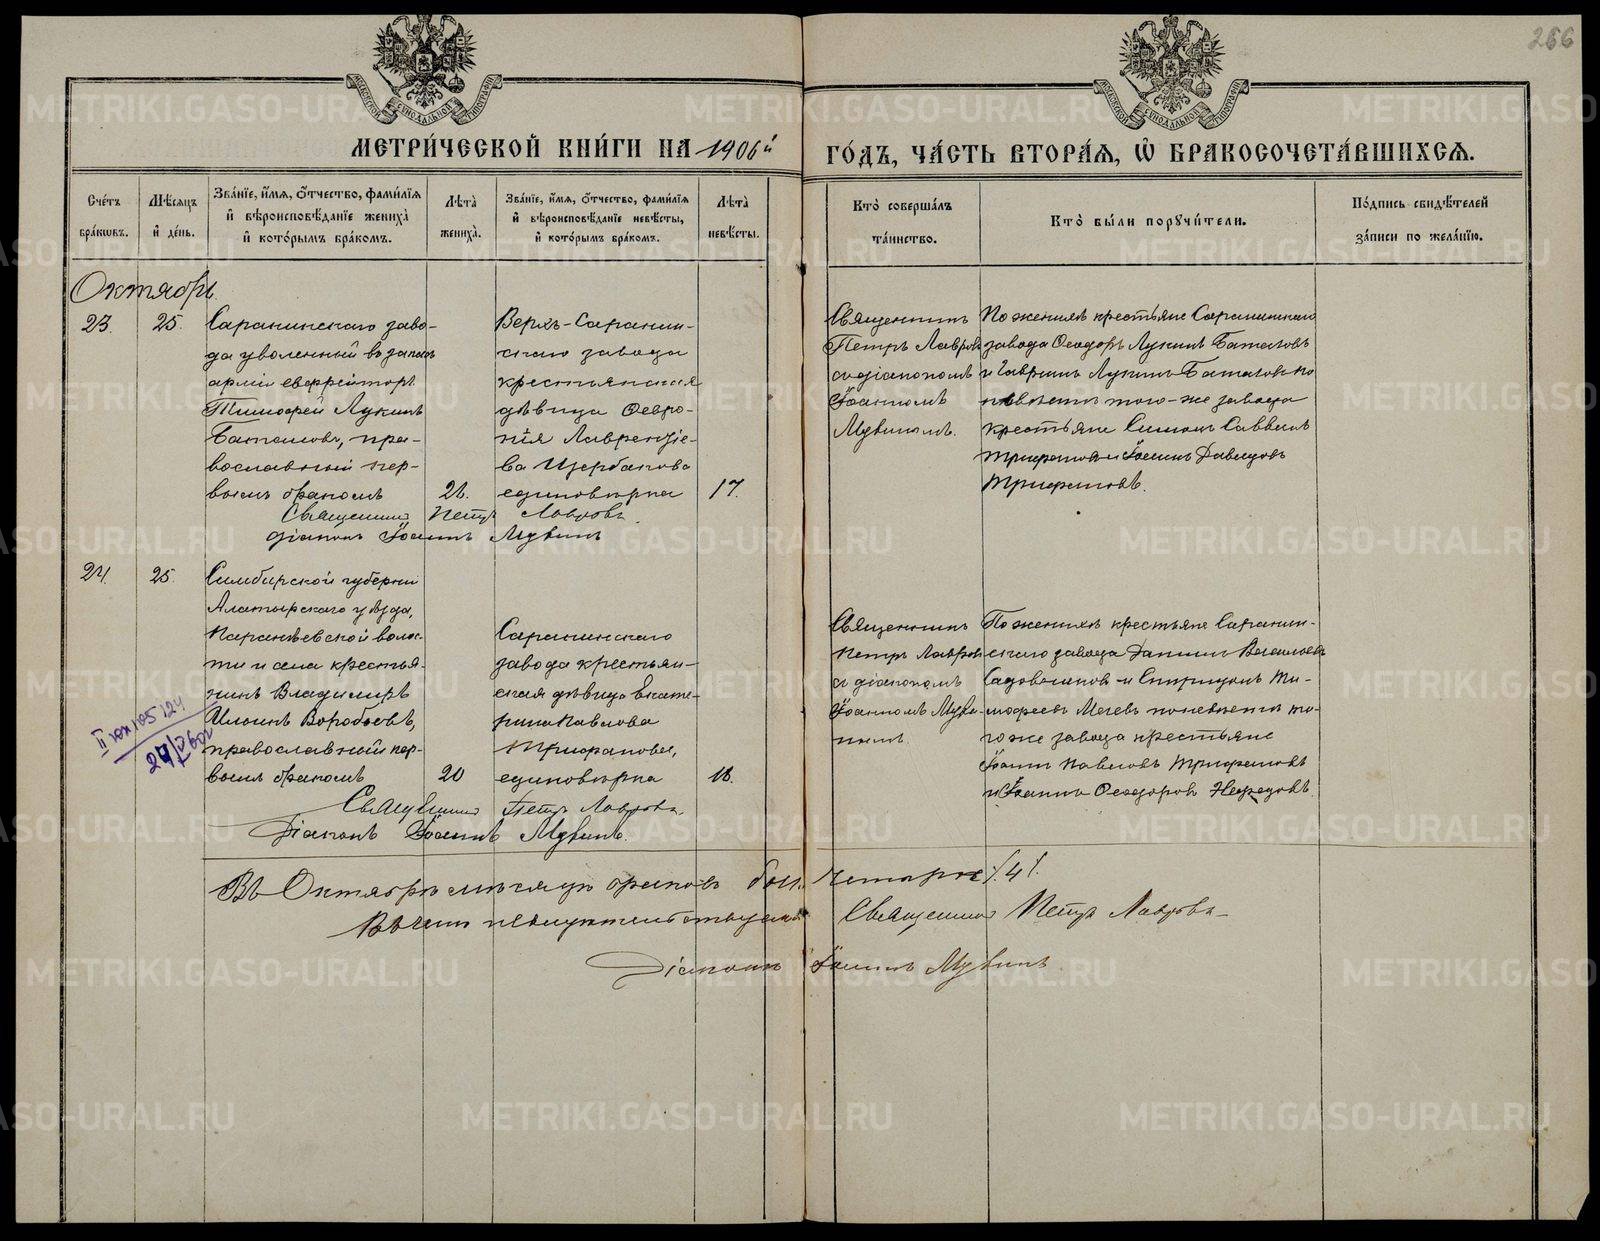 266
МЕТРИ́ЧЕСКОЙ КНИ́ГИ НА 1906й
ГО́ДЪ, ЧА́СТЬ ВТОРА́Я, Ѡ҆ БРАКОСОЧЕТА́ВШИХСЯ.
Сче́тъ бра́кѡвъ.
Мѣ́сяцъ и҆ де́нь.
Зва́нїе, и҆́мя, о҆́тчество, фами́лїя
и҆ вѣроисповѣ́данїе жениха̀
и҆ кото́рымъ бра́комъ.
Лѣ́та жениха̀.
Зва́нїе, и҆́мя, о҆́тчество, фами́лїя
и҆ вѣроисповѣ́данїе невѣ́сты,
и҆ кото́рымъ бра́комъ.
Лѣ́та невѣ́сты.
Кто̀ соверша́лъ
та́инство.
Кто̀ бы́ли поручи́тели.
По́дпись свидѣ́телей
за́писи по жела́нїю.
Октябрь
23.
25.
Саранинскаго заво-
да уволенный въ запасъ
арміи ефрейторъ
Тимофей Лукинъ
Баташовъ, пра-
вославный пер-
вымъ бракомъ
Верхъ-Саранин-
скаго завода
крестьянская
дѣвица Февро-
нія Лаврентіе-
ва Щербакова
единовѣрка
17.
Священникъ
Петръ Лавровъ
съ діакономъ
Іоанномъ
Мухинымъ.
По женихѣ крестьяне Саранинскаго
завода Ѳеодоръ Лукинъ Баташовъ
и Гавріилъ Лукинъ Баташовъ по
невѣстѣ того-же завода
крестьяне Симонъ Саввинъ
Трифановъ и Іоаннъ Давидовъ
Трифановъ.
Священникъ Петръ Лавровъ
Діаконъ Іоаннъ Мухинъ
24.
25.
Симбирской губерніи
Алатырскаго уѣзда,
волос-
ти и села крестья-
нинъ Владиміръ
Ильинъ Воробьевъ,
православный пер-
вымъ бракомъ
20
Саранинскаго
завода крестьян-
ская дѣвица Екате-
рина Павлова
Трифанова,
единовѣрка
18.
Священникъ
Петръ Лавровъ
съ діакономъ
Іоанномъ Мухи-
нымъ
По женихѣ крестьяне Саранин-
скаго завода Даніилъ Васильевъ
Садовниковъ и Спиридонъ Ти-
мофеевъ по невѣстѣ то-
го же завода крестьяне
Іоаннъ Павловъ Трифановъ
и Іоаннъ Ѳеодоровъ
Священникъ Петръ Лавровъ
Діаконъ Іоаннъ Мухинъ.
Въ Октябрѣ мѣсяцѣ браковъ было четыре /.4/.
Въ чемъ и свидѣтельствуемъ Священникъ Петръ Лавровъ
Діаконъ Іоаннъ Мухинъ
METRIKI.GASO-URAL.RU